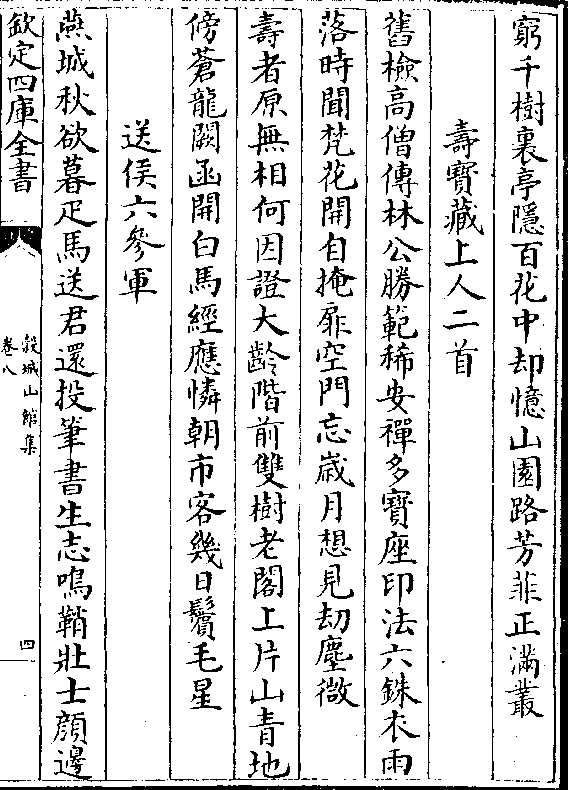 窮千樹裏亭隱百花中却憶山園路芳菲正滿叢
壽寶藏上人二首
舊檢高僧傳林公勝範稀安禪多寶座印法六銖衣雨
落時聞梵花開自掩扉空門忘歲月想見劫塵微
壽者原無相何因證大齡階前雙樹老閣上片山青地
傍蒼龍闕函開白馬經應憐朝市客幾日鬢毛星
送侯六參軍
燕城秋欲暮疋馬送君還投筆書生志鳴鞘壯士顔邊
欽定四庫全書
榖城山館集
卷八
四